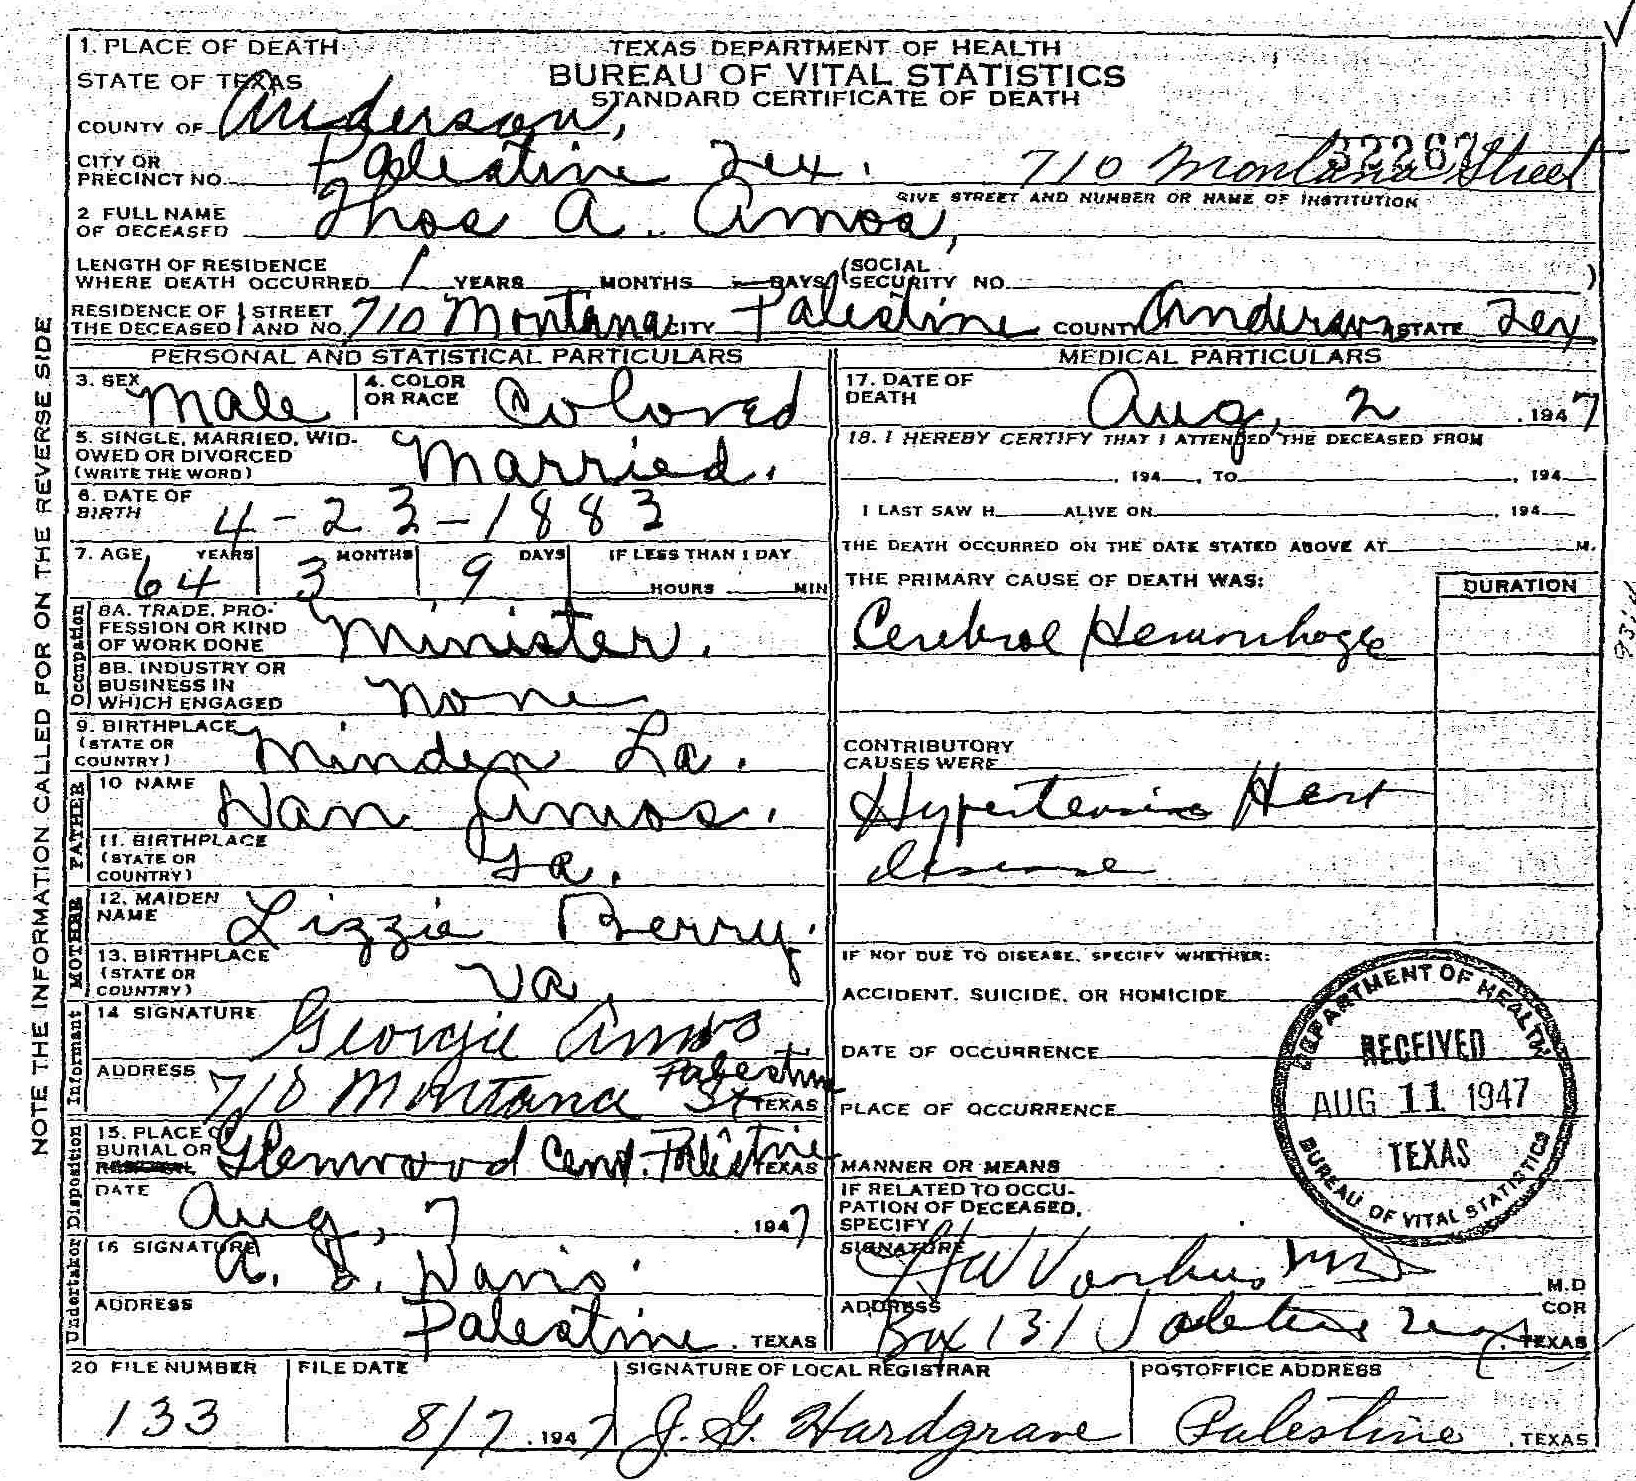 1. PLACE OF DEATH
STATE OF TEXAS
TEXAS DEPARTMENT OF HEALTH
BUREAU OF VITAL STATISTICS
STANDARD CERTIFICATE OF DEATH
COUNTY OF Anderson,
32267
CITY OR PRECINCT NO. Palestine Tex. 710 Montana Street
GIVE STREET AND NUMBER OR NAME OF INSTITUTION
2 FULL NAME OF DECEASED Thos A. Amos,
LENGTH OF RESIDENCE WHERE DEATH OCCURRED 1 YEARS MONTHS DAYS (SOCIAL SECURITY NO. )
RESIDENCE OF THE DECEASED STREET AND NO. 710 Montana CITY Palestine COUNTY Anderson STATE Tex
PERSONAL AND STATISTICAL PARTICULARS
3. SEX Male 4. COLOR OR RACE Colored
5. SINGLE, MARRIED, WIDOWED OR DIVORCED (WRITE THE WORD) Married.
6. DATE OF BIRTH 4-23-1883
7. AGE 64 YEARS 3 MONTHS 9 DAYS IF LESS THAN 1 DAY HOURS MIN
Occupation
8A. TRADE, PROFESSION OR KIND OF WORK DONE Minister.
8B. INDUSTRY OR BUSINESS IN WHICH ENGAGED none
9. BIRTHPLACE (STATE OR COUNTRY) Minden La.
FATHER
10 NAME Dan Amos.
11. BIRTHPLACE (STATE OR COUNTRY) Ga.
MOTHER
12. MAIDEN NAME Lizzie Berry.
13. BIRTHPLACE (STATE OR COUNTRY) Va.
Informant
14 SIGNATURE Georgie Amos
ADDRESS 710 Montana St Palestine TEXAS
Disposition
15. PLACE OF BURIAL OR REMOVAL Glenwood Cem. Palestine TEXAS
DATE Aug, 7 1947
Undertaker
16 SIGNATURE A. D. Davis
ADDRESS Palestine. TEXAS
MEDICAL PARTICULARS
17. DATE OF DEATH Aug, 2 .1947
18. I HEREBY CERTIFY THAT I ATTENDED THE DECEASED FROM
, 194 , TO , 194
I LAST SAW H ALIVE ON , 194
THE DEATH OCCURRED ON THE DATE STATED ABOVE AT M.
THE PRIMARY CAUSE OF DEATH WAS: DURATION
Cerebral Hemorrhage
CONTRIBUTORY CAUSES WERE
Hypertensive Heart
disease
IF NOT DUE TO DISEASE, SPECIFY WHETHER:
ACCIDENT, SUICIDE, OR HOMICIDE
DATE OF OCCURRENCE
PLACE OF OCCURRENCE
MANNER OR MEANS
IF RELATED TO OCCUPATION OF DECEASED, SPECIFY
SIGNATURE M.D
ADDRESS Box 131 Palestine Texas COR TEXAS
DEPARTMENT OF HEALTH
RECEIVED
AUG 11 1947
TEXAS
BUREAU OF VITAL STATISTICS
20 FILE NUMBER 133
FILE DATE 8/7 .1947
SIGNATURE OF LOCAL REGISTRAR J. G. Hardgrave
POSTOFFICE ADDRESS Palestine, TEXAS
NOTE THE INFORMATION CALLED FOR ON THE REVERSE SIDE